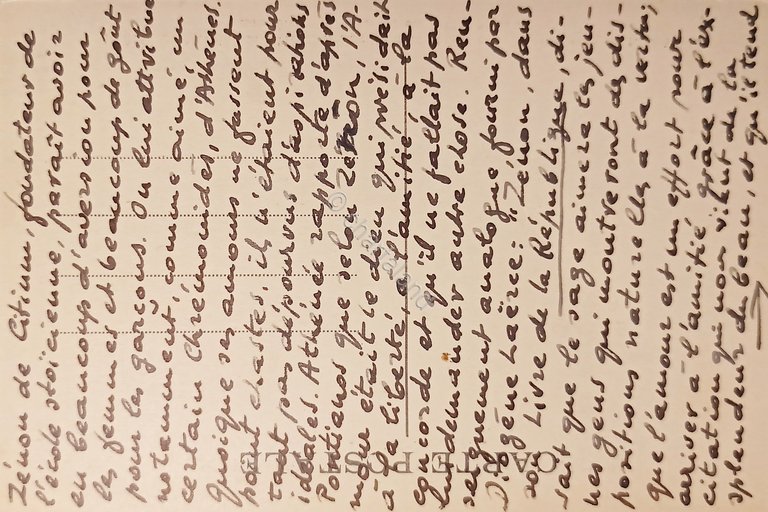 Zénon de Citium, fondateur de
l'école stoïcienne, paraît avoir
eu beaucoup d'aversion pour
les femmes et beaucoup de goût
pour les garçons. On lui attribue
notamment, comme aimé, un
certain Chrémonidès, d'Athènes.
Quoique ses amours ne fussent
point chastes, ils n'étaient pour
tant pas dépourvus d'aspirations
idéales. Athénée rapporte d'après
Pontianos que selon Zénon, l'A-
mour était le dieu qui présidait
à la liberté, à l'amitié, à la
concorde et qu'il ne fallait pas
lui demander autre chose. Ren-
seignement analogue fourni par
Diogène Laërce: "Zénon, dans
son Livre de la République, di-
sait que le sage aimera les jeu-
nes gens qui montreront des dis-
positions naturelles à la vertu;
que l'amour est un effort pour
arriver à l'amitié grâce à l'ex-
citation qui nous vient de la
splendeur du beau, et qu'il tend
CARTE POSTALE